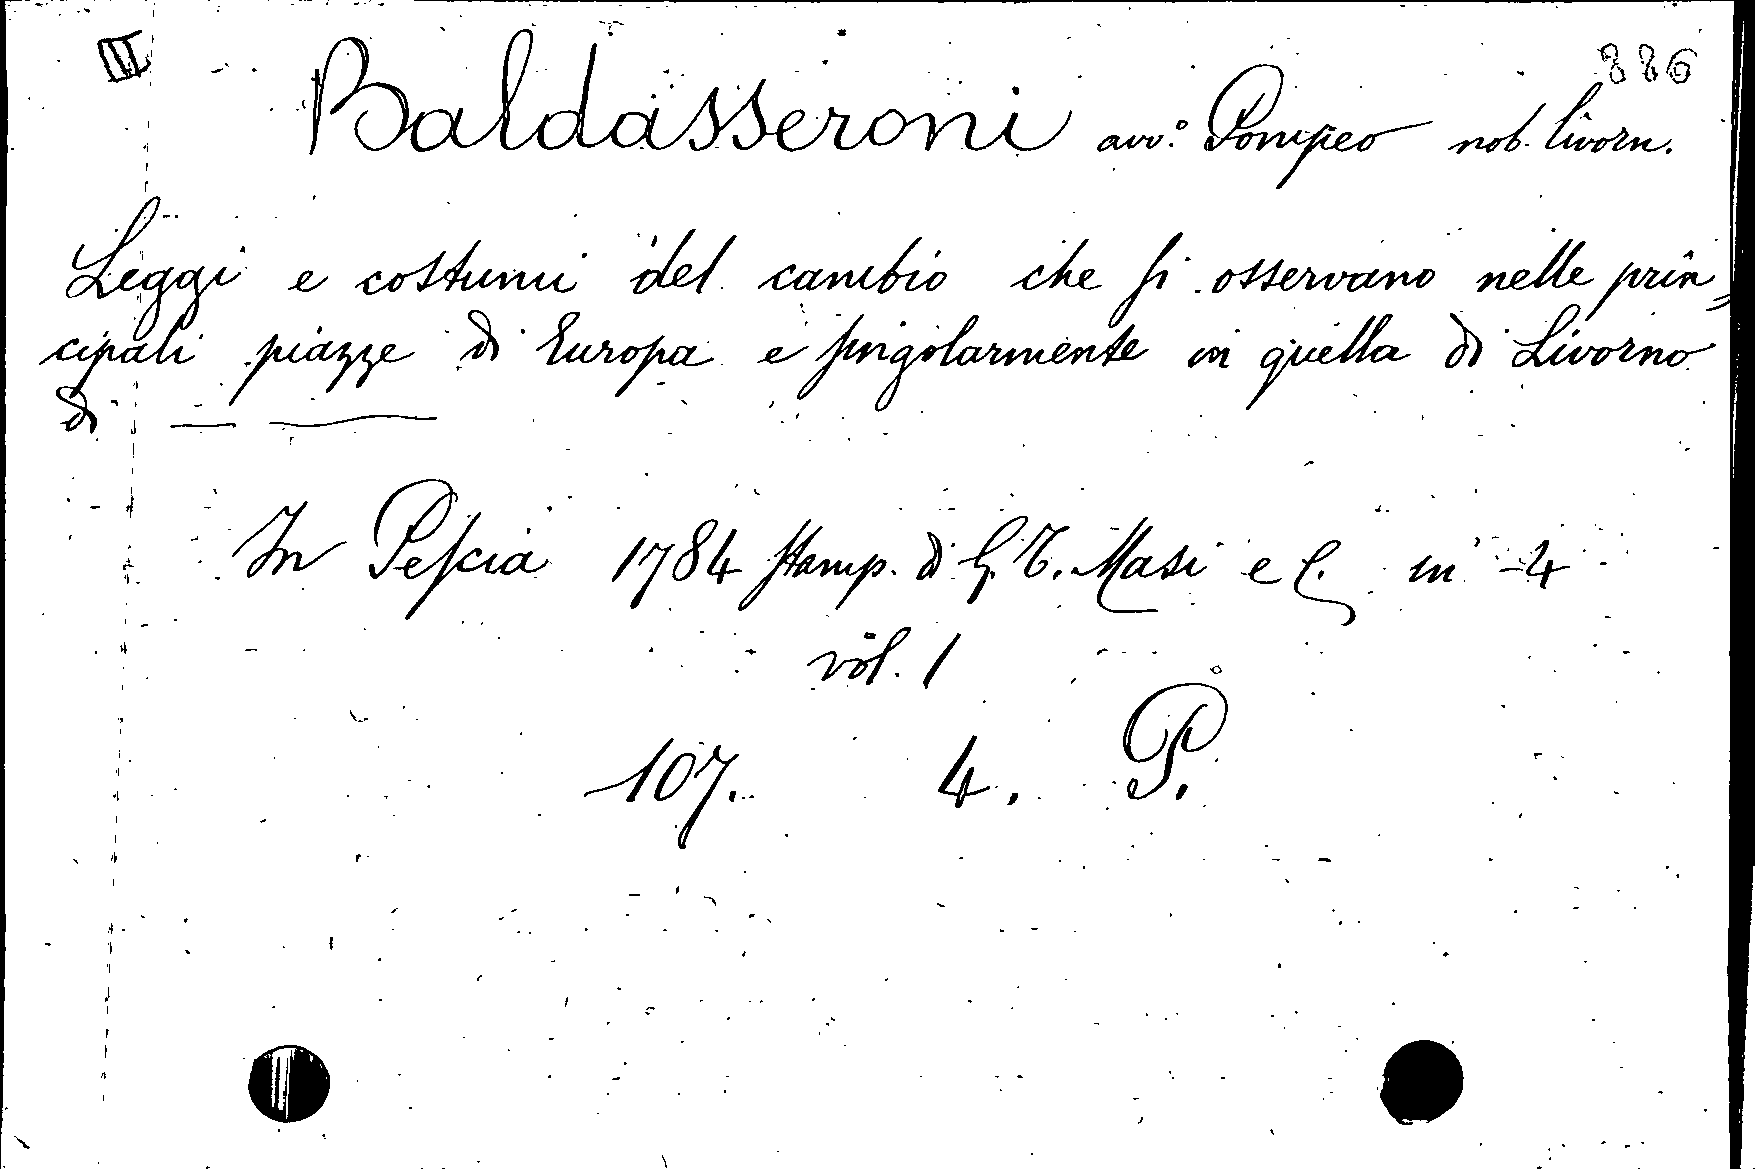 II 886
Baldasseroni avv.° Pompeo nob. livorn.
Leggi e costumi del cambio che si osservano nelle prin=
cipali piazze di Europa e singolarmente in quella di Livorno
di — —
In Pescia 1784 stamp. di G. T. Masi e C. in - 4
vol. 1
107. 4. P.